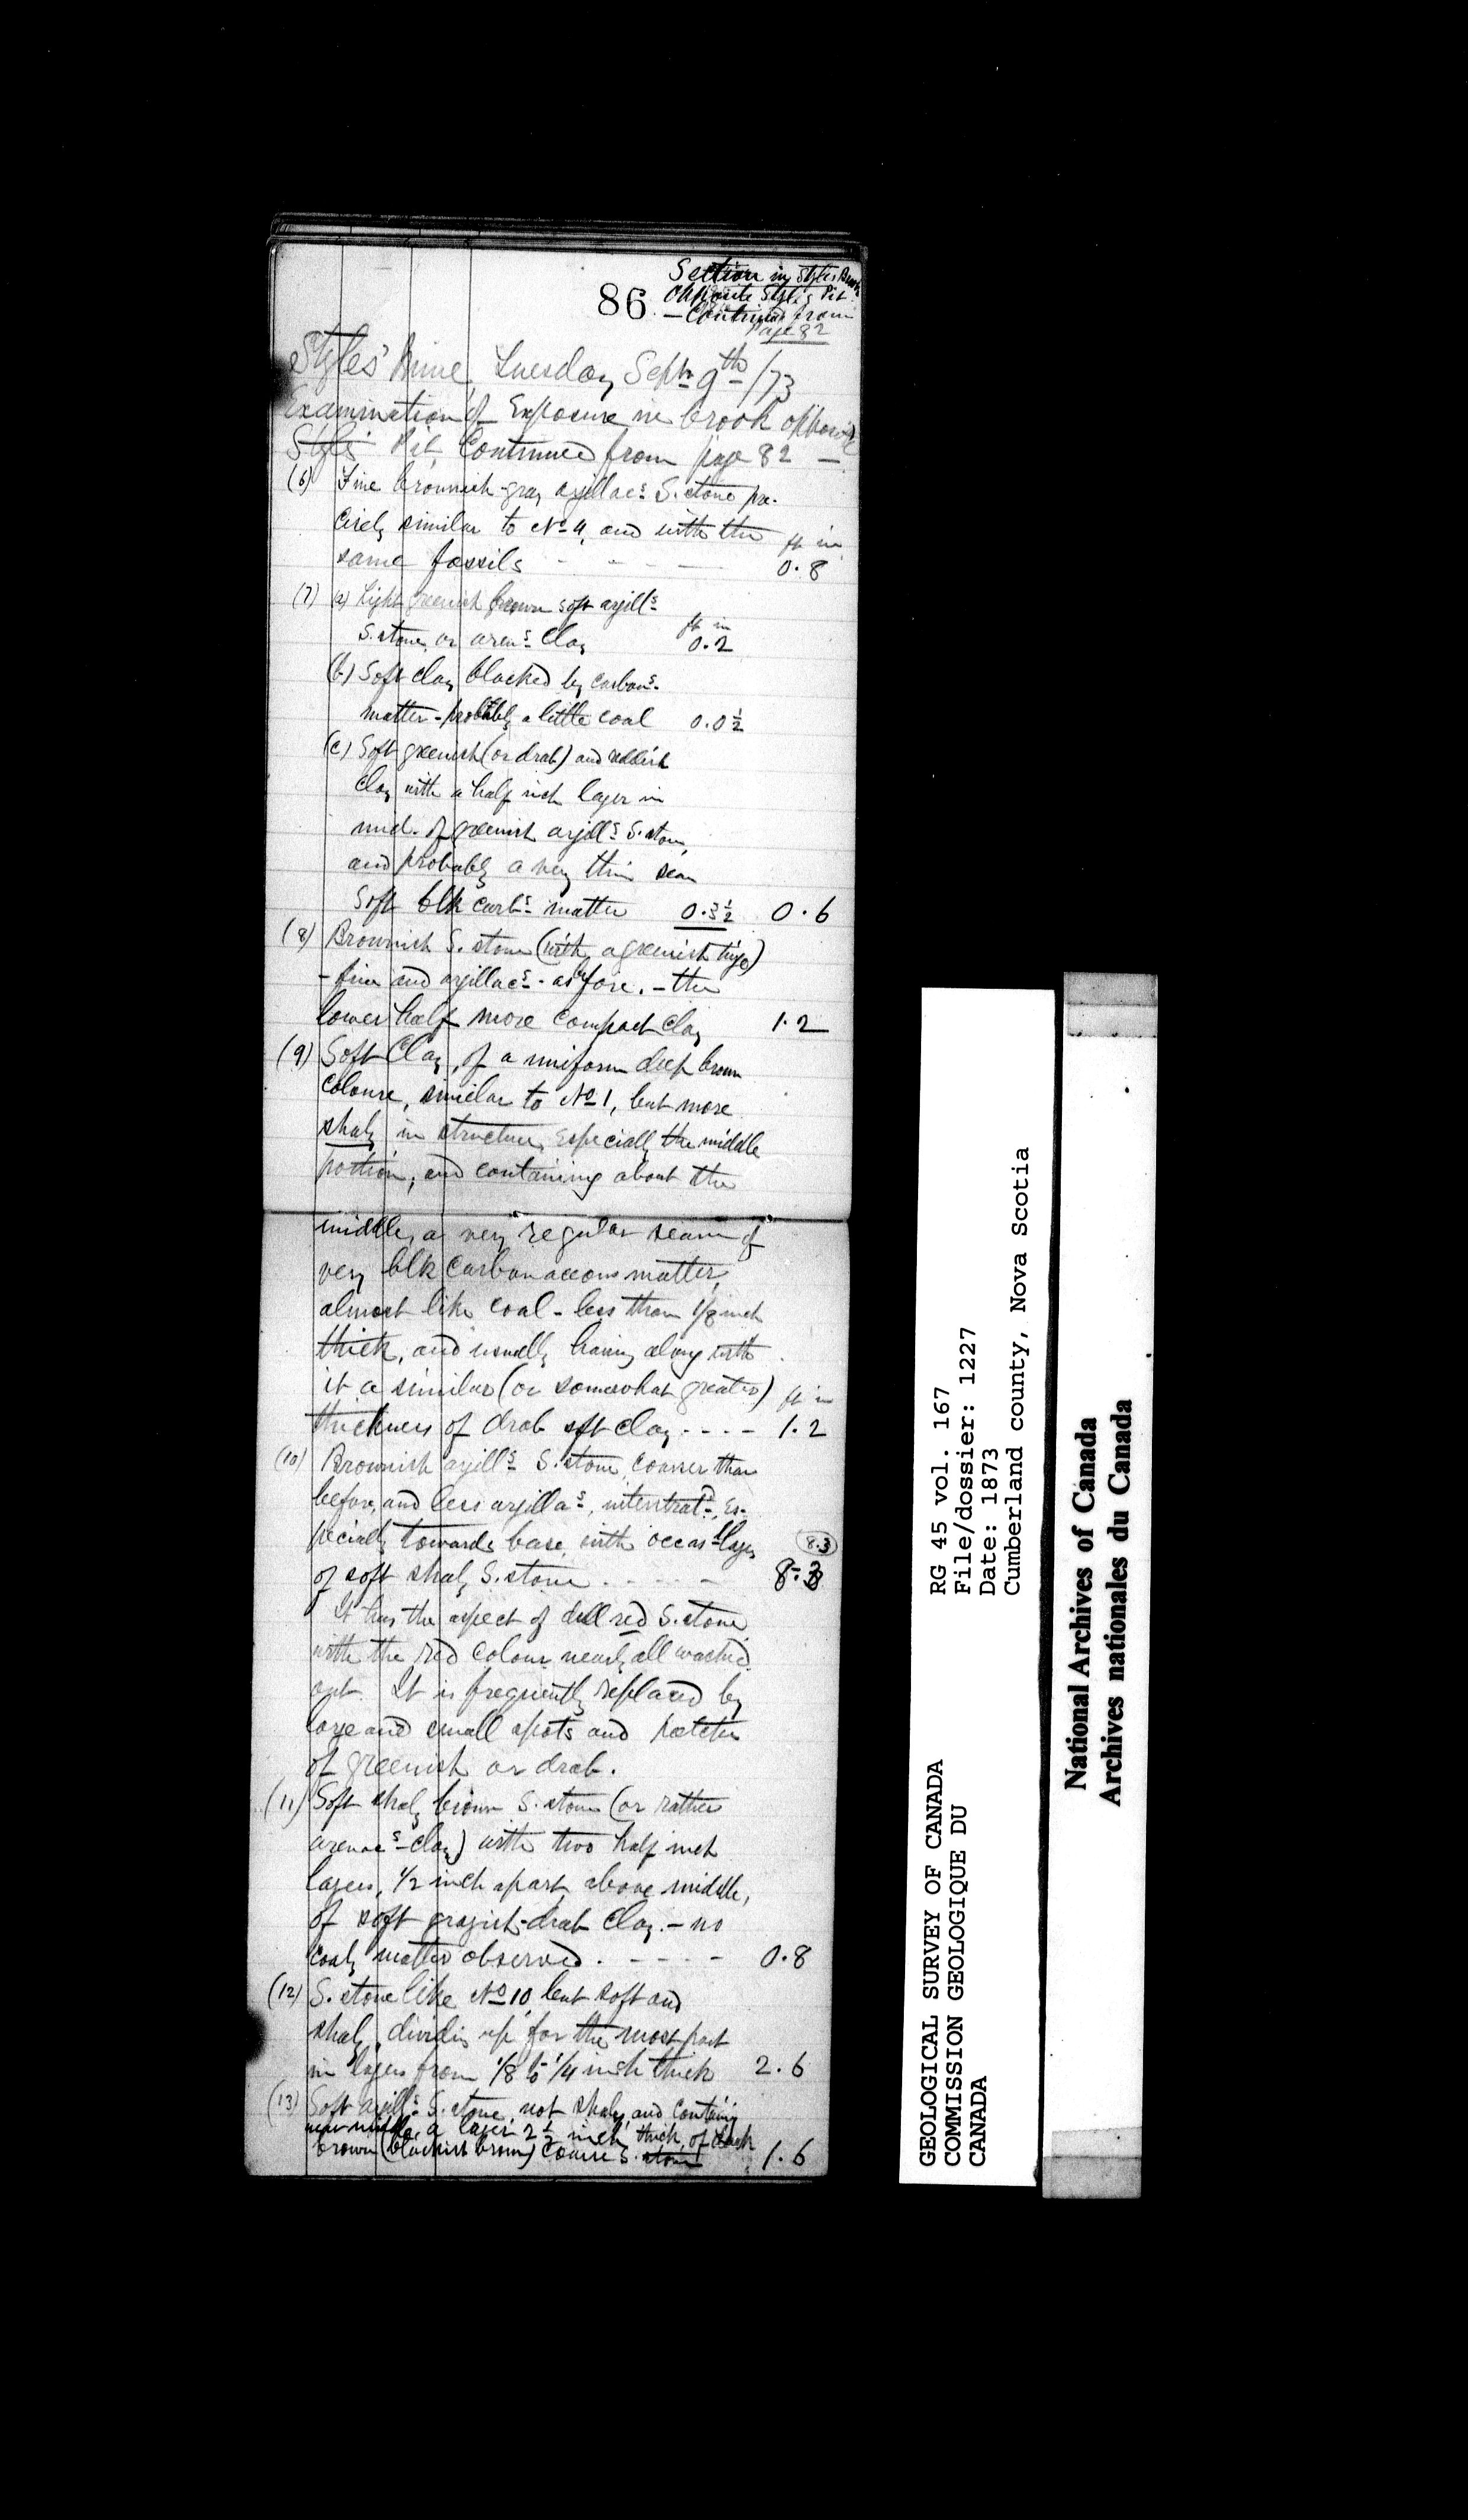 86.
Section in Styles Brook
Opposite Styles Pit
— Continued from
Page 82
Styles' Mine, Tuesday Sept. 9th /73
Examination of Exposure in brook opposite
Styles' Pit, Continued from page 82 —
(6) Fine brownish-gray argillacs. S. stone pre-
cisely similar to No 4, and with the
ft in
same fossils - - - - 0.8
(7) (a) Light greenish brown soft argills.
ft in
S. stone, or arens. Clay 0.2
(b) Soft clay blacked by carbons.
matter - probably a little coal 0.0½
(c) Soft greenish (or drab) and reddish
Clay with a half inch layer in
mid. of greenish argills. S. stone,
and probably a very thin seam
Soft blk carbs. matter 0.3½ 0.6
(8) Brownish S. stone (with a greenish tinge)
- fine and argillacs. - as before. - the
lower half more compact clay 1.2
(9) Soft Clay, of a uniform deep brown
colour, similar to No 1, but more
shaly in structure, especially the middle
portion, and containing about the
middle, a very regular seam of
very blk Carbonaceous matter,
almost like coal - less than 1/8 inch
thick, and usually having along with
it a similar (or somewhat greater) ft in
thickness of drab soft clay - - - - 1.2
(10) Brownish argills. S. stone, coarser than
before, and less argillas., interstratd., es-
pecially towards base, with occasl. layers (8.3)
of soft shaly S. stone - - - - 8.3
It has the aspect of dull red S. stone
with the red colour nearly all washed
out. It is frequently replaced by
large and small spots and patches
of greenish or drab.
(11) Soft shaly brown S. stone (or rather
arenacs. clay) with two half inch
layers, 1/2 inch apart, above middle,
of soft grayish-drab Clay. - no
coaly matter observed. - - - - 0.8
(12) S. stone like No 10, but soft and
shaly, dividing up for the most part
in layers from 1/8 to 1/4 inch thick 2.6
(13) Soft argills. S. stone, not shaly, and containing
near middle, a layer 2½ inch thick, of dark
brown (blackish brown) coarse S. stone 1.6
RG 45 vol. 167
File/dossier: 1227
Date: 1873
Cumberland county, Nova Scotia
GEOLOGICAL SURVEY OF CANADA
COMMISSION GEOLOGIQUE DU
CANADA
National Archives of Canada
Archives nationales du Canada